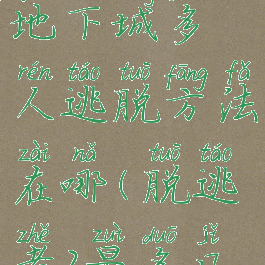 地下城多
rén táo tuō fāng fǎ
人逃脱方法
zài nǎ tuō táo
在哪(脱逃
zhě zuì duō
者)最多